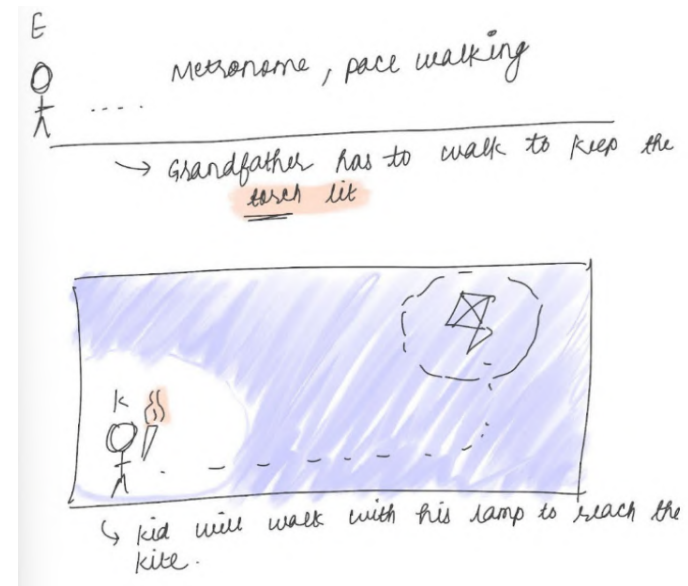 E
Metronome, pace walking
→ Grandfather has to walk to keep the
torch lit
K
↳ kid will walk with his lamp to reach the
kite.